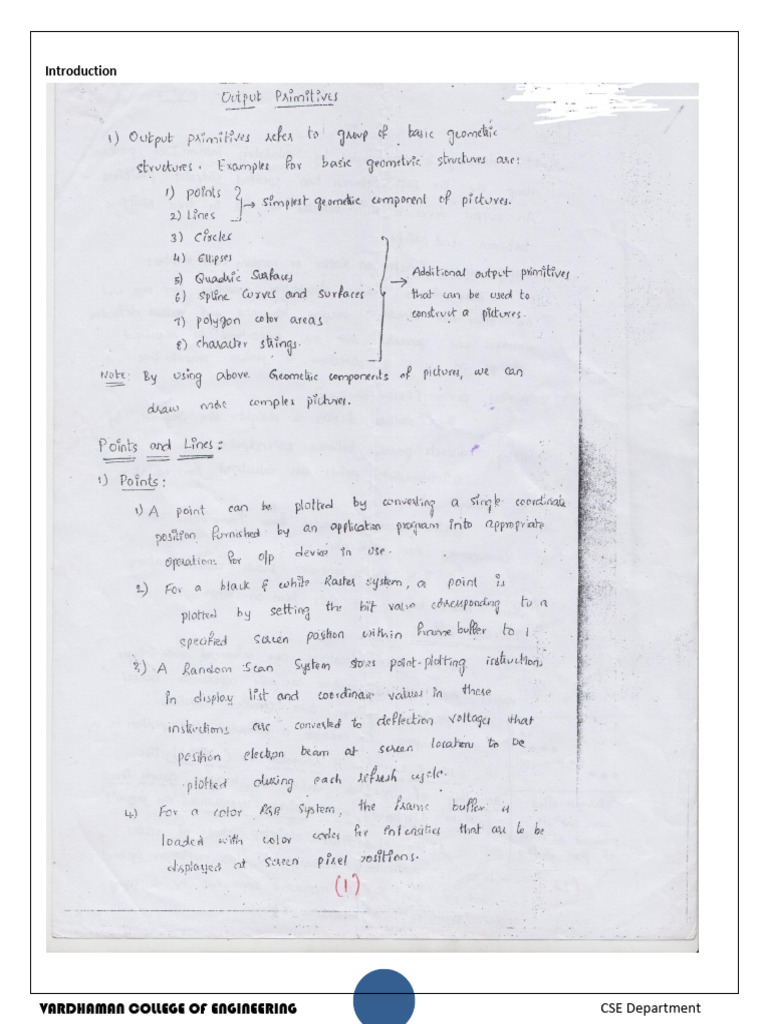 Introduction
Output Primitives
1) Output primitives refer to group of basic geometric
structures. Examples for basic geometric structures are:
1) points
2) Lines
→ simplest geometric component of pictures.
3) Circles
4) Ellipses
5) Quadric Surfaces
6) Spline Curves and surfaces
7) polygon color areas
8) character strings.
→ Additional output primitives
that can be used to
construct a pictures.
Note: By using above Geometric components of pictures, we can
draw more complex pictures.
Points and Lines:
1) Points:
1) A point can be plotted by converting a single coordinate
position furnished by an application program into appropriate
operations for o/p device in use.
2) For a black & white Raster System, a point is
plotted by setting the bit value corresponding to a
specified screen position within frame buffer to 1
3) A Random Scan System stores point-plotting instructions
in display list and coordinate values in these
instructions are converted to deflection voltages that
position electron beam at screen locations to be
plotted during each refresh cycle.
4) For a color RGB System, the frame buffer is
loaded with color codes for intensities that are to be
displayed at screen pixel positions.
(1)
VARDHAMAN COLLEGE OF ENGINEERING
CSE Department